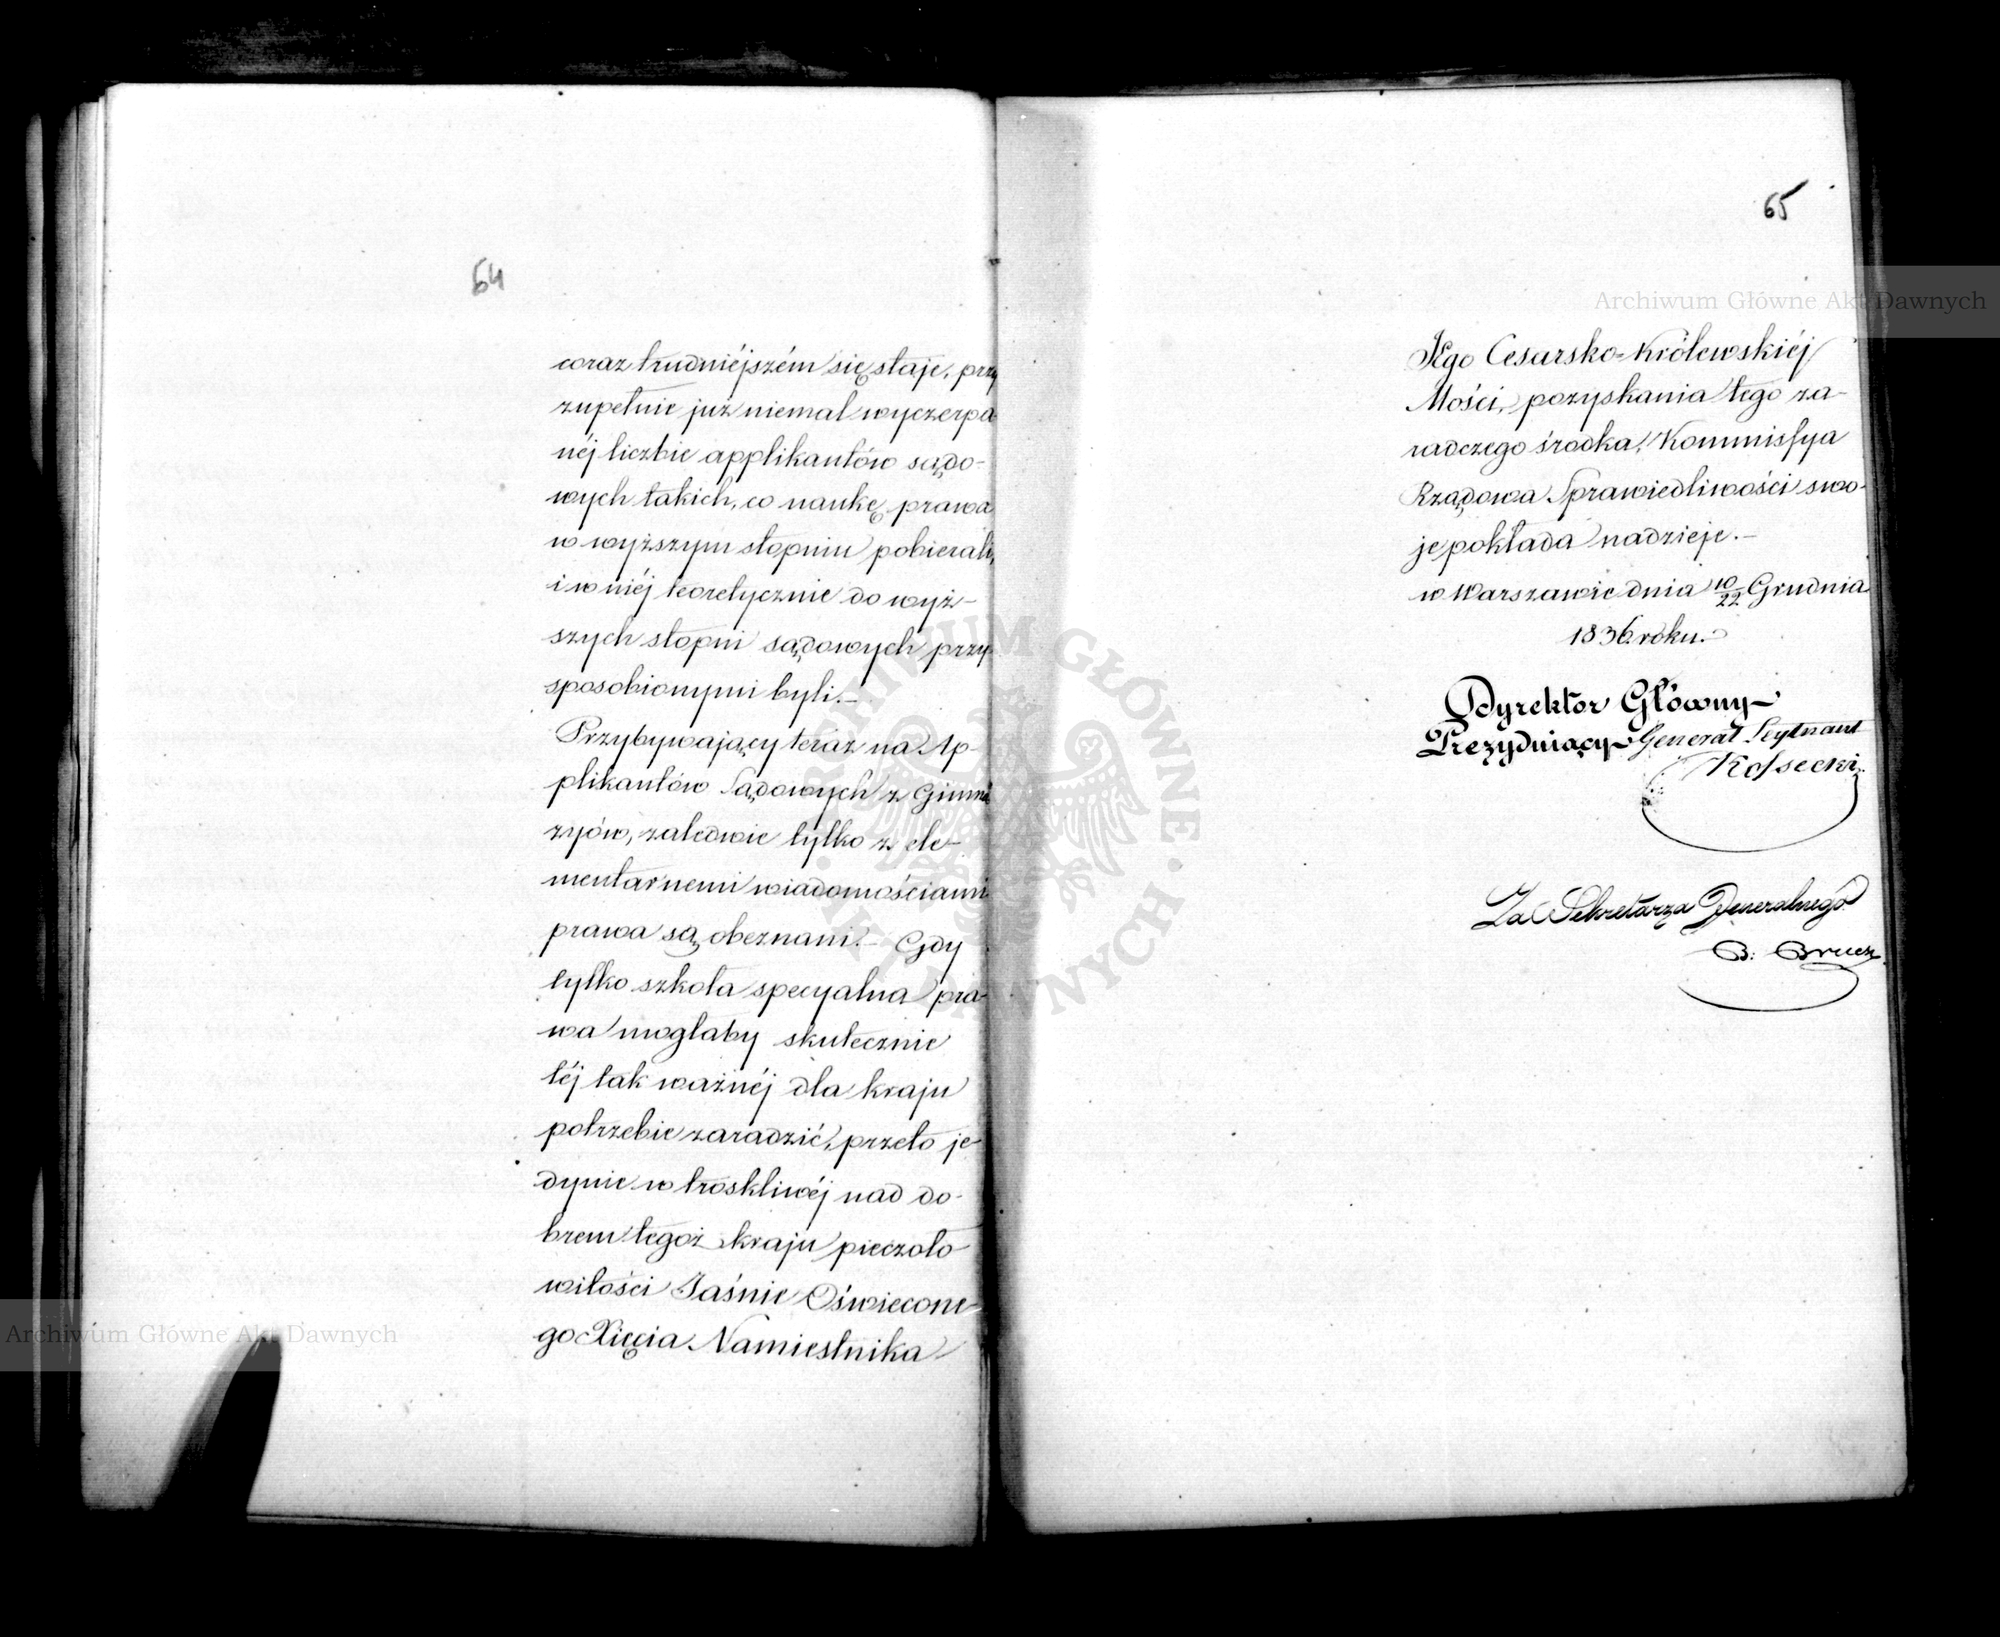 64
coraz trudniéjszém się staje, przy
zupełnie już niemal wyczerpa
néj liczbie applikantów sądo-
wych takich, co naukę prawa
w wyższym stopniu pobierali,
i w niéj teoretycznie do wyż-
szych stopni sądowych przy-
sposobionymi byli.-
Przybywający teraz na Ap-
plikantów Sądowych z Gimna
zyów, zaledwie tylko z ele-
mentarnemi wiadomościami
prawa są obeznani.- Gdy
tylko szkoła specyalna pra-
wa mogłaby skutecznie
téj tak ważnéj dla kraju
potrzebie zaradzić, przeto je-
dynie w troskliwéj nad do-
brem tegoż kraju pieczoło
witości Jaśnie Oświecone-
go Xięcia Namiestnika
65
Jego Cesarsko-Królewskiéj
Mości, pozyskania tego za-
radczego środka, Kommissya
Rządowa Sprawiedliwości swo-
je pokłada nadzieje.-
w Warszawie dnia 10/22 Grudnia
1836 roku.
Dyrektor Główny
Prezydujący Generał Leytnant
Kossecki
Za Sekretarza Generalnego
Archiwum Główne Akt Dawnych
Archiwum Główne Akt Dawnych
ARCHIWUM GŁÓWNE AKT DAWNYCH